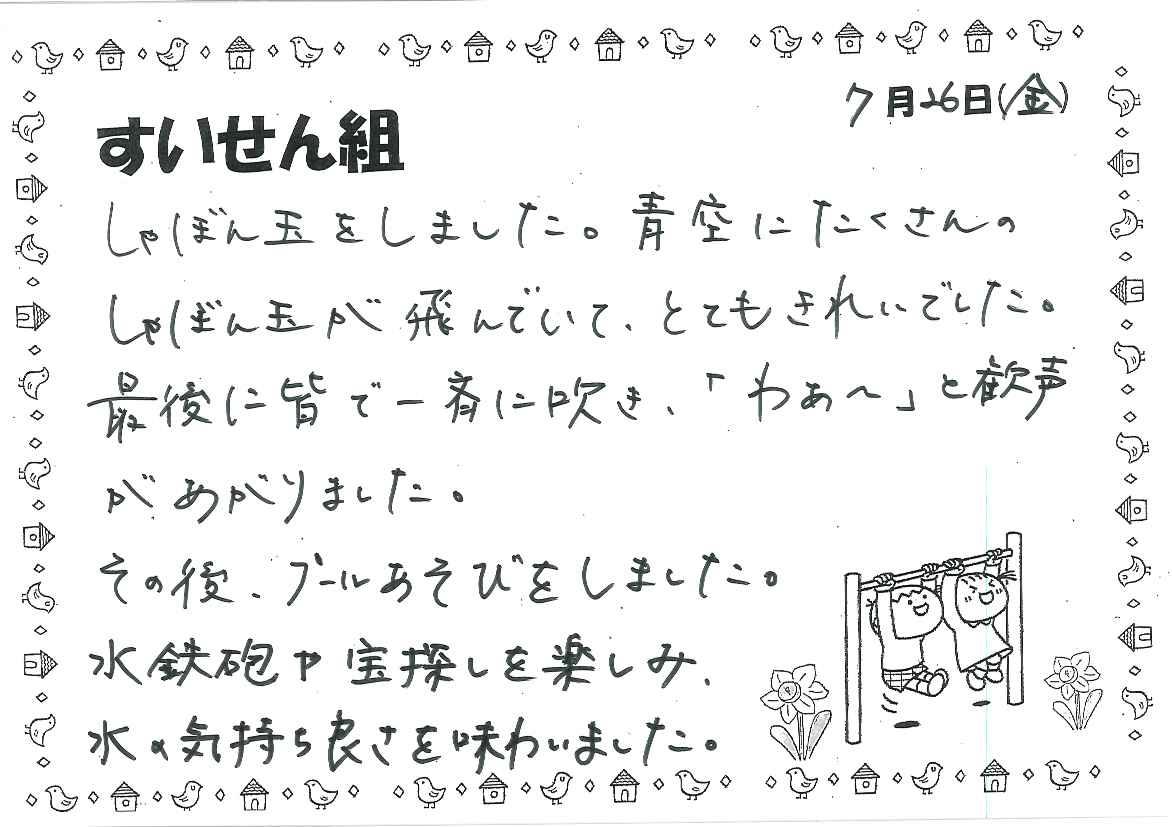 7月26日(金)
すいせん組
しゃぼん玉をしました。青空にたくさんの
しゃぼん玉が飛んでいて、とてもきれいでした。
最後に皆で一斉に吹き、「わぁ〜」と歓声
があがりました。
その後、プールあそびをしました。
水鉄砲や宝探しを楽しみ、
水の気持ち良さを味わいました。